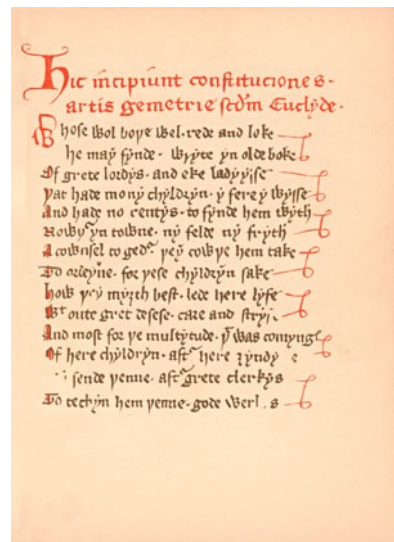 Hic incipiunt constituciones
artis gemetrie scd̄m Euclyde.
Whose wol boþe wel rede and loke
he may fynde wryte yn olde boke
Of grete lordys and eke ladyysse
Þat hade mony chyldryn y fere y wysse
And hade no rentys to fynde hem wyth
Nowþyr yn towne ny felde ny fryth
A cownsel togedʳ þey cowþe hem take
To ordeyne for þese chyldryn sake
How þey myȝth best lede here lyfe
Wᵗ oute gret desese care and stryf
And most for þe multytude þᵗ was comyng
Of here chyldryn aftʳ here
sende þenne aftʳ grete clerkys
To techyn hem þenne gode werkys